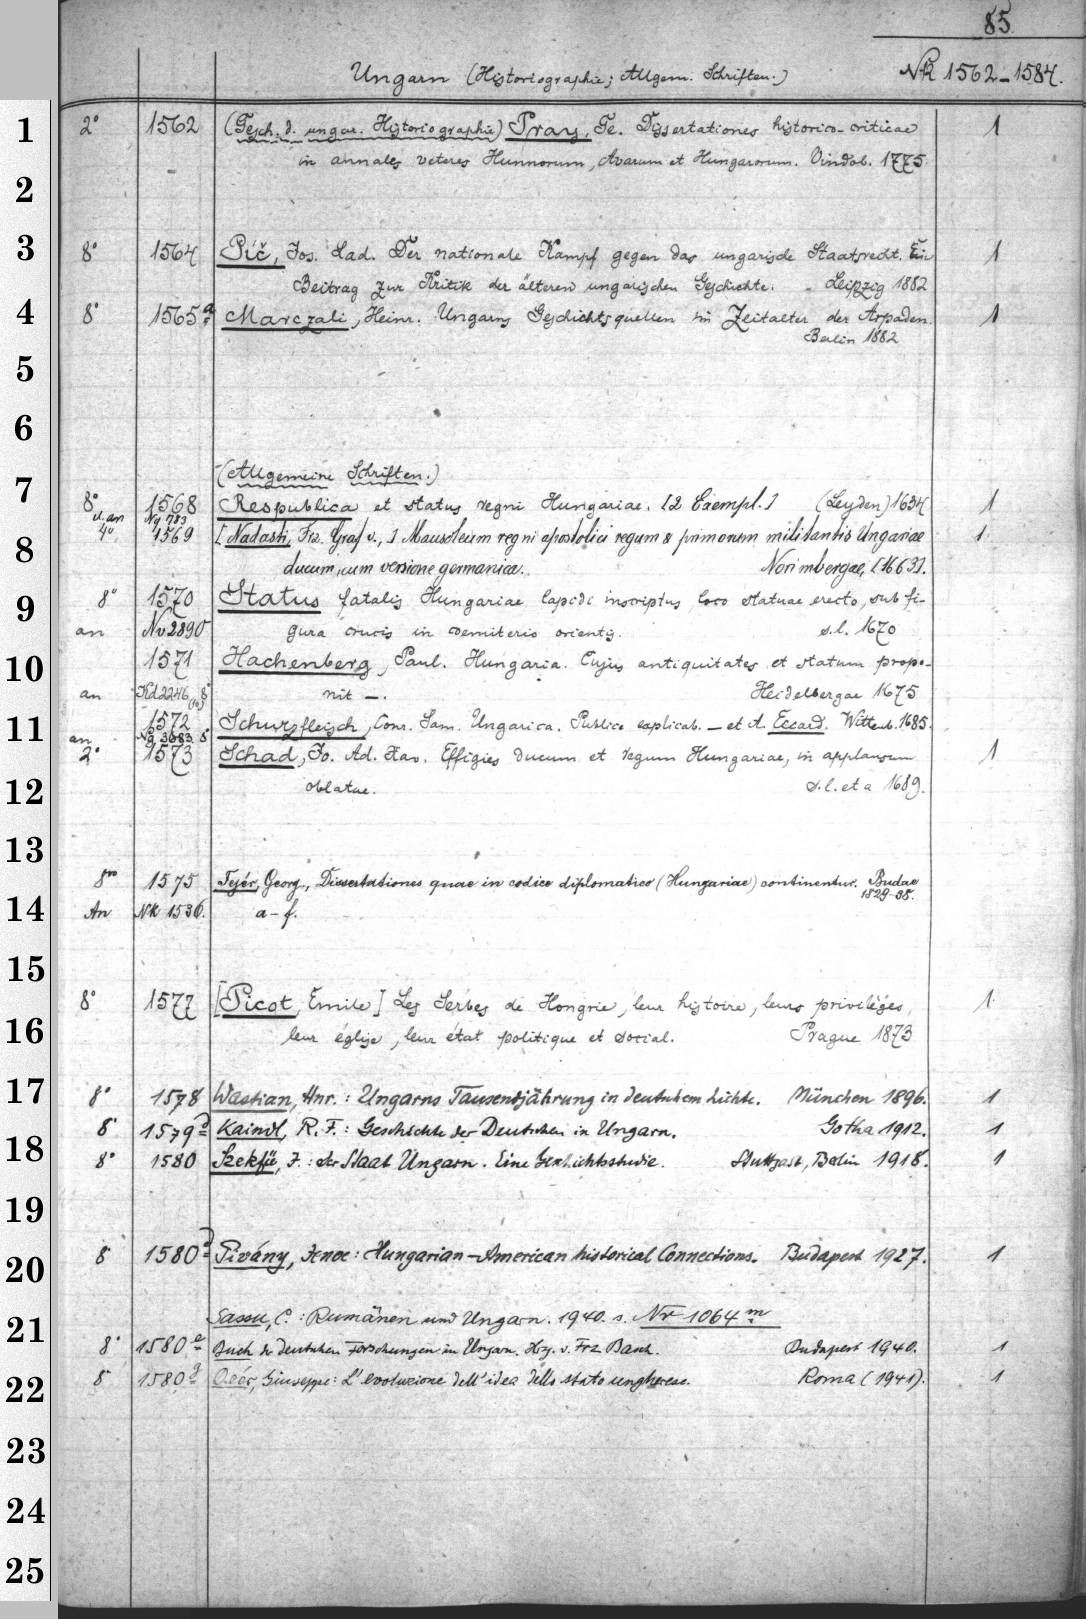 85
Ungarn (Historiographie; Allgem. Schriften.) Nk 1562-1584.
1 2° 1562 (Gesch. d. ungar. Historiographie) Pray, Ge. Dissertationes historico-criticae 1
in annales veteres Hunnorum, Avarum et Hungarorum. Vindob. 1775.
2
3 8° 1564 Píč, Jos. Lad. Der nationale Kampf gegen das ungarische Staatsrecht. Ein 1
Beitrag zur Kritik der älteren ungarischen Geschichte. Leipzig 1882
4 8° 1565a Marczali, Heinr. Ungarns Geschichtsquellen im Zeitalter der Arpaden. 1
Berlin 1882
5
6
(Allgemeine Schriften.)
7 8° 1568 Respublica et status regni Hungariae. [2 Exempl.] (Leyden) 1634 1
u. an Ng 783
4° 1569 [Nadasti, Frz. Graf v.,] Mausoleum regni apostolici regum & primorum militantis Ungariae 1
8 ducum, cum versione germanica. Norimbergae, [1663].
9 8° 1570 Status fatalis Hungariae lapidi inscriptus, loco statuae erecto, sub fi-
an Nv 2890 gura crucis in coemiterio orientis. s.l. 1670
10 1571 Hachenberg, Paul. Hungaria. Cujus antiquitates et statum propo-
an Kd 2246 8° nit —. Heidelbergae 1675
11 1572 Schurzfleisch, Conr. Sam. Ungarica. Publice explicab. — et A. Eccard. Witteb. 1685.
an Ng 3683 8°
2° 1573 Schad, Jo. Ad. Xav. Effigies ducum et regum Hungariae, in applausum 1
12 oblatae. s.l. et a 1689.
13
8vo 1575 Fejér, Georg., Dissertationes quae in codice diplomatico (Hungariae) continentur. Budae
1829-35.
14 An Nk 1536. a-f.
15
8° 1577 [Picot, Emile] Les Serbes de Hongrie, leur histoire, leurs privilèges, 1
16 leur église, leur état politique et social. Prague 1873
17 8° 1578 Wastian, Hnr.: Ungarns Tausendjährung in deutschem Lichte. München 1896. 1
8° 1579a Kaindl, R. F.: Geschichte der Deutschen in Ungarn. Gotha 1912. 1
18 8° 1580 Szekfü, J.: der Staat Ungarn. Eine Geschichtsstudie. Stuttgart, Berlin 1918. 1
19
20 8° 1580 Pivány, Jenoe: Hungarian-American historical Connections. Budapest 1927. 1
21 Sassu, C.: Rumänen und Ungarn. 1940. s. Nr 1064m
8° 1580e Buch der deutschen Forschungen in Ungarn. Hrg. v. Frz Basch. Budapest 1940. 1
22 8° 1580g Deér, Giuseppe: L'evoluzione dell'idea dello stato ungherese. Roma (1941). 1
23
24
25